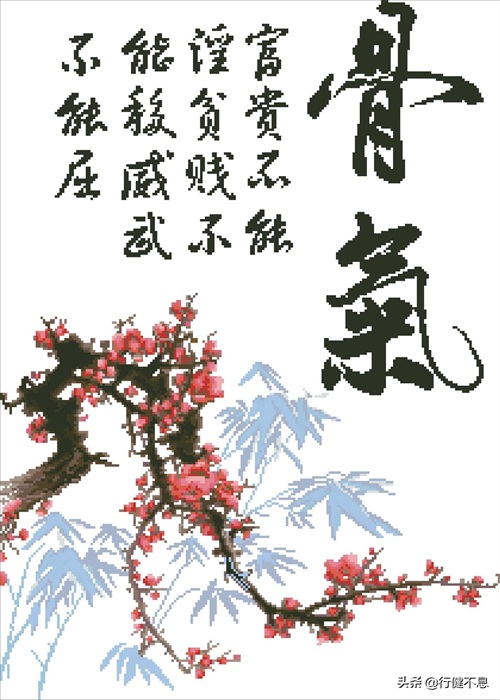 骨氣
富貴不能
淫贫贱不
能移威武
不能屈
头条 @行健不息